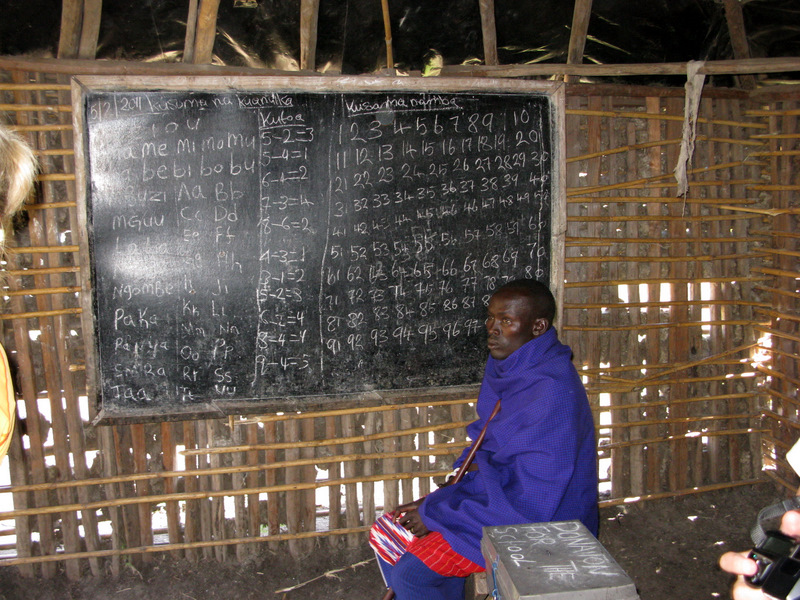 2011 kusuma na kuandika
Kutoa
Kusoma namba
I O U
ma me mi mo mu
be bi bo bu
Aa Bb
Cc Dd
Ff
Ii Jj
Kk Ll
Mm Nn
Oo Pp
Rr Ss
MGUU
Ngombe
Paka
Taa
5-2=3
5-4=1
6-4=2
7-3=4
8-6=2
4-3=1
3-1=2
5-2=3
8-4=4
9-4=5
1 2 3 4 5 6 7 8 9 10
11 12 13 14 15 16 17 18 19 20
21 22 23 24 25 26 27 28 29 30
31 32 33 34 35 36 37 38 39 40
41 42 43 44 45 46 47 48 49 50
51 52 53 54 55 56 57 58 59 60
61 62 63 64 65 66 67 68 69 70
71 72 73 74 75 76 77 78 79 80
81 82 83 84 85 86 87 8
91 92 93 94 95 96 97
DONATION
FOR THE